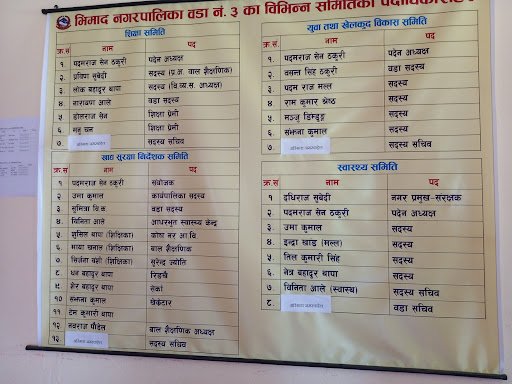 भिमाद नगरपालिका वडा नं. ३ का विभिन्न समितिका पदाधिकारीहरु
शिक्षा समिति
क्र.सं नाम पद
१ पदमराज सेन ठकुरी पदेन अध्यक्ष
२. प्रविणा सुबेदी सदस्य (प्र.अ. बाल शैक्षणिक)
३. लोक बहादुर थापा सदस्य (वि.व्य.स. अध्यक्ष)
४. नारायण आले वडा सदस्य
५. डोलराज सेन शिक्षा प्रेमी
६. मनु चन शिक्षा प्रेमी
७. सदस्य सचिव
खाद्य सुरक्षा निर्देशक समिति
क्र.स. नाम पद
१ पदमराज सेन ठकुरी संयोजक
२. उमा कुमाल कार्यपालिका सदस्य
३. सुमित्रा वि.क. वडा सदस्य
४. विनिता आले आधारभूत स्वास्थ्य केन्द्र
५. सुसिल थापा (शिक्षिका)
६. माया खनाल (शिक्षिका) बाल शैक्षणिक
७. (शिक्षिका) सुरेन्द्र ज्योति
८. धन बहादुर थापा रिडखै
९. शेर बहादुर थापा सेर्का
१० सम्झना कुमाल
११. टेम कुमारी थापा
१२ नवराज पौडेल बाल शैक्षणिक अध्यक्ष
१३. सदस्य सचिव
युवा तथा खेलकुद विकास समिति
क्र.सं नाम पद
१. पदमराज सेन ठकुरी पदेन अध्यक्ष
२. वसन्त सिंह ठकुरी वडा सदस्य
३. पदम राज मल्ल सदस्य
४. राम कुमार श्रेष्ठ सदस्य
५. मञ्जु डिम्डुङ्ग सदस्य
६. सम्झना कुमाल सदस्य
७. सदस्य सचिव
स्वास्थ्य समिति
क्र.स. नाम पद
१ दधिराज सुबेदी नगर प्रमुख-संरक्षक
२. पदमराज सेन ठकुरी पदेन अध्यक्ष
३. उमा कुमाल सदस्य
४. इन्द्रा खाँड (मल्ल) सदस्य
५. तिल कुमारी सिंह सदस्य
६. नेत्र बहादुर थापा सदस्य
७. विनिता आले (स्वास्थ) सदस्य सचिव
८. वडा सचिव